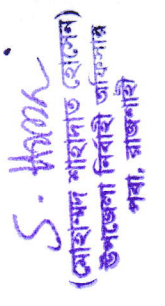 S. Hossa
(মোহাম্মদ শাহাদাত হোসেন)
উপজেলা নির্বাহী অফিসার
পবা, রাজশাহী